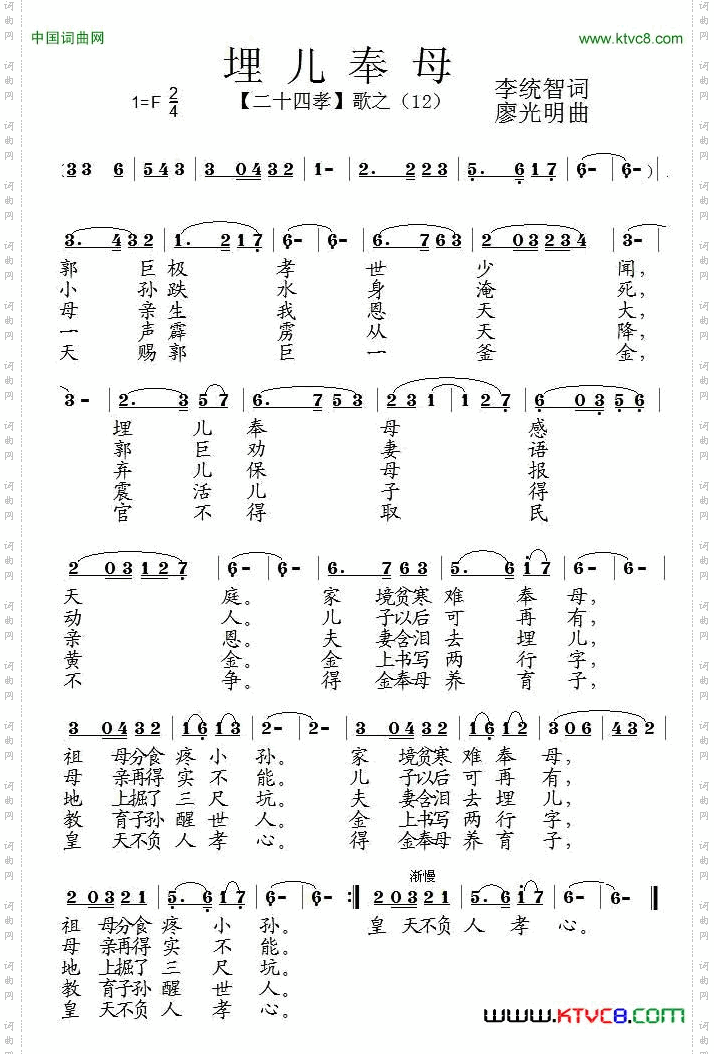 中国词曲网 www.ktvc8.com
埋儿奉母
1=F 2/4 【二十四孝】歌之（12） 李统智词
廖光明曲
(3 3 6 | 5 4 3 | 3 0 4 3 2 | 1 - | 2. 2 2 3 | 5. 6 1 7 | 6 - | 6 - ) |
3. 4 3 2 | 1. 2 1 7 | 6 - | 6 - | 6. 7 6 3 | 2 0 3 2 3 4 | 3 - |
郭巨极孝世少闻，
小孙跌水身淹死，
母亲生我恩天大，
一声霹雳从天降，
天赐郭巨一釜金，
3 - | 2. 3 5 7 | 6. 7 5 3 | 2 3 1 | 1 2 7 | 6 0 3 5 6 |
埋儿奉母感
郭巨劝妻语
弃儿保母报
震活儿子得
官不得取民
2 0 3 1 2 7 | 6 - | 6 - | 6. 7 6 3 | 5. 6 i 7 | 6 - | 6 - |
天庭。家境贫寒难奉母，
动人。儿子以后可再有，
亲恩。夫妻含泪去埋儿，
黄金。金上书写两行字，
不争。得金奉母养育子，
3 0 4 3 2 | 1 6 1 3 | 2 - | 2 - | 3 0 4 3 2 | 1 6 1 2 | 3 0 6 | 4 3 2 |
祖母分食疼小孙。家境贫寒难奉母，
母亲再得实不能。儿子以后可再有，
地上掘了三尺坑。夫妻含泪去埋儿，
教育子孙醒世人。金上书写两行字，
皇天不负人孝心。得金奉母养育子，
渐慢
2 0 3 2 1 | 5. 6 1 7 | 6 - | 6 - :‖ 2 0 3 2 1 | 5. 6 i 7 | 6 - | 6 - ‖
祖母分食疼小孙。皇天不负人孝心。
母亲再得实不能。
地上掘了三尺坑。
教育子孙醒世人。
皇天不负人孝心。
www.KTVC8.COM
词曲网